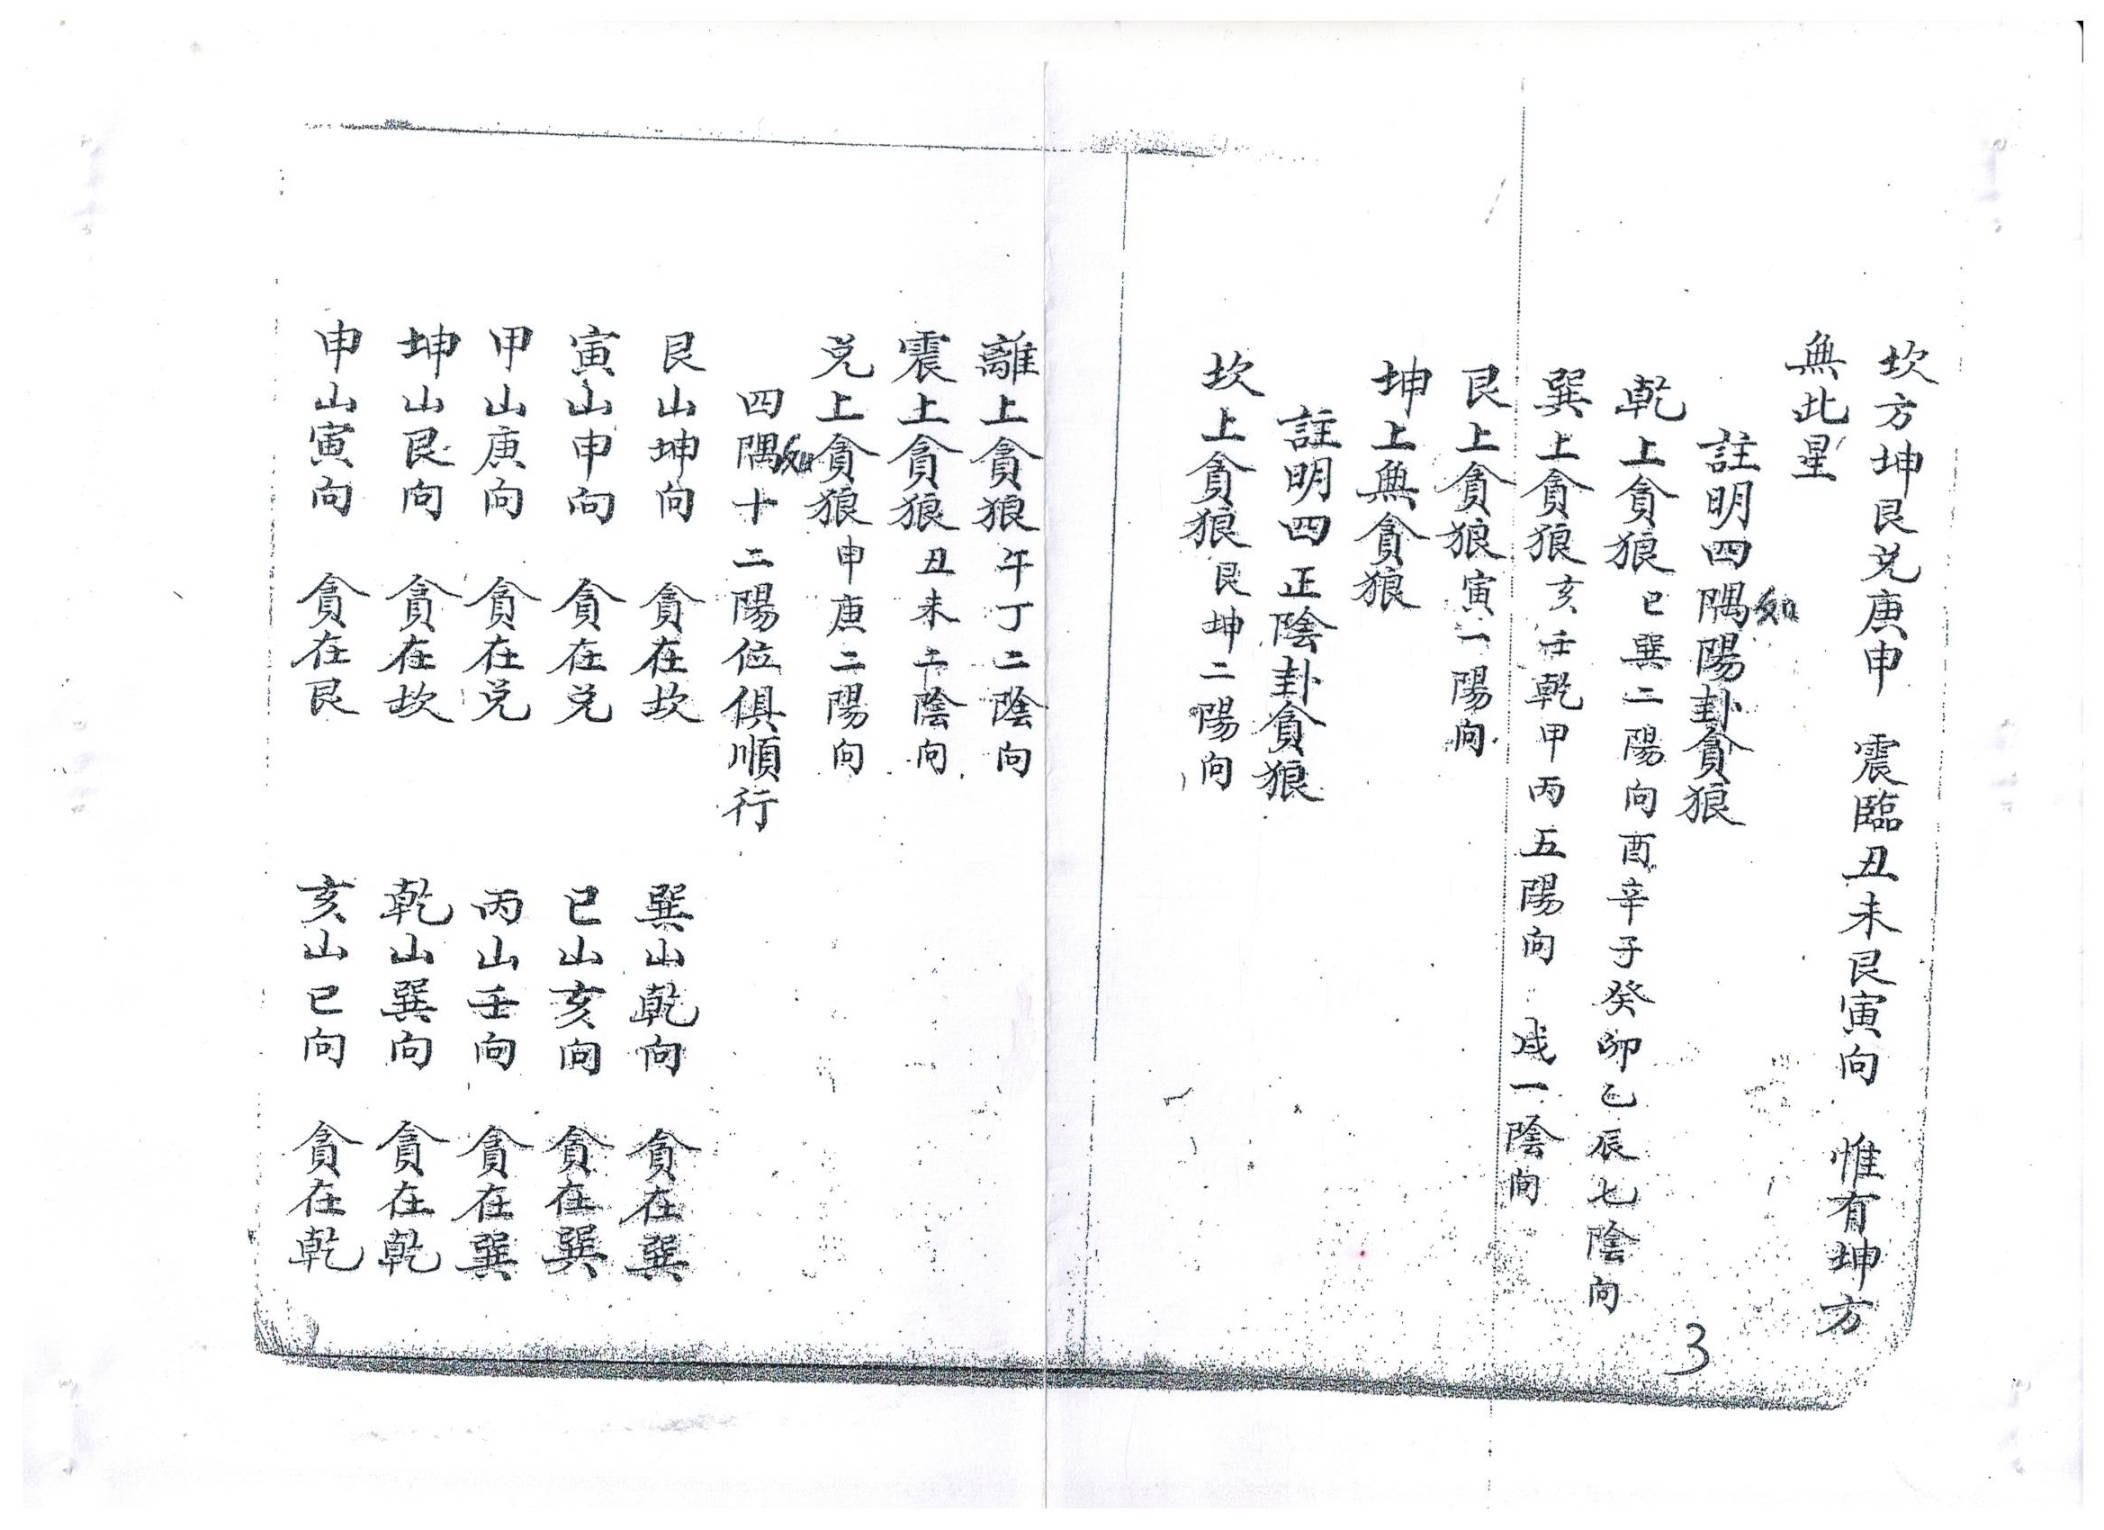 坎方坤艮兌庚申　震臨丑未艮寅向　惟有坤方
無此星
註明四隅陽卦貪狼
如
乾上貪狼巳巽二陽向酉辛子癸卯乙辰七陰向
巽上貪狼亥壬乾甲丙五陽向　戌一陰向
艮上貪狼寅一陽向
坤上無貪狼
註明四正陰卦貪狼
坎上貪狼艮坤二陽向
離上貪狼午丁二陰向
震上貪狼丑未二陰向
兌上貪狼申庚二陽向
四隅十二陽位俱順行
如
艮山坤向　貪在坎　巽山乾向　貪在巽
寅山申向　貪在兌　巳山亥向　貪在巽
甲山庚向　貪在兌　丙山壬向　貪在巽
坤山艮向　貪在坎　乾山巽向　貪在乾
申山寅向　貪在艮　亥山巳向　貪在乾
3